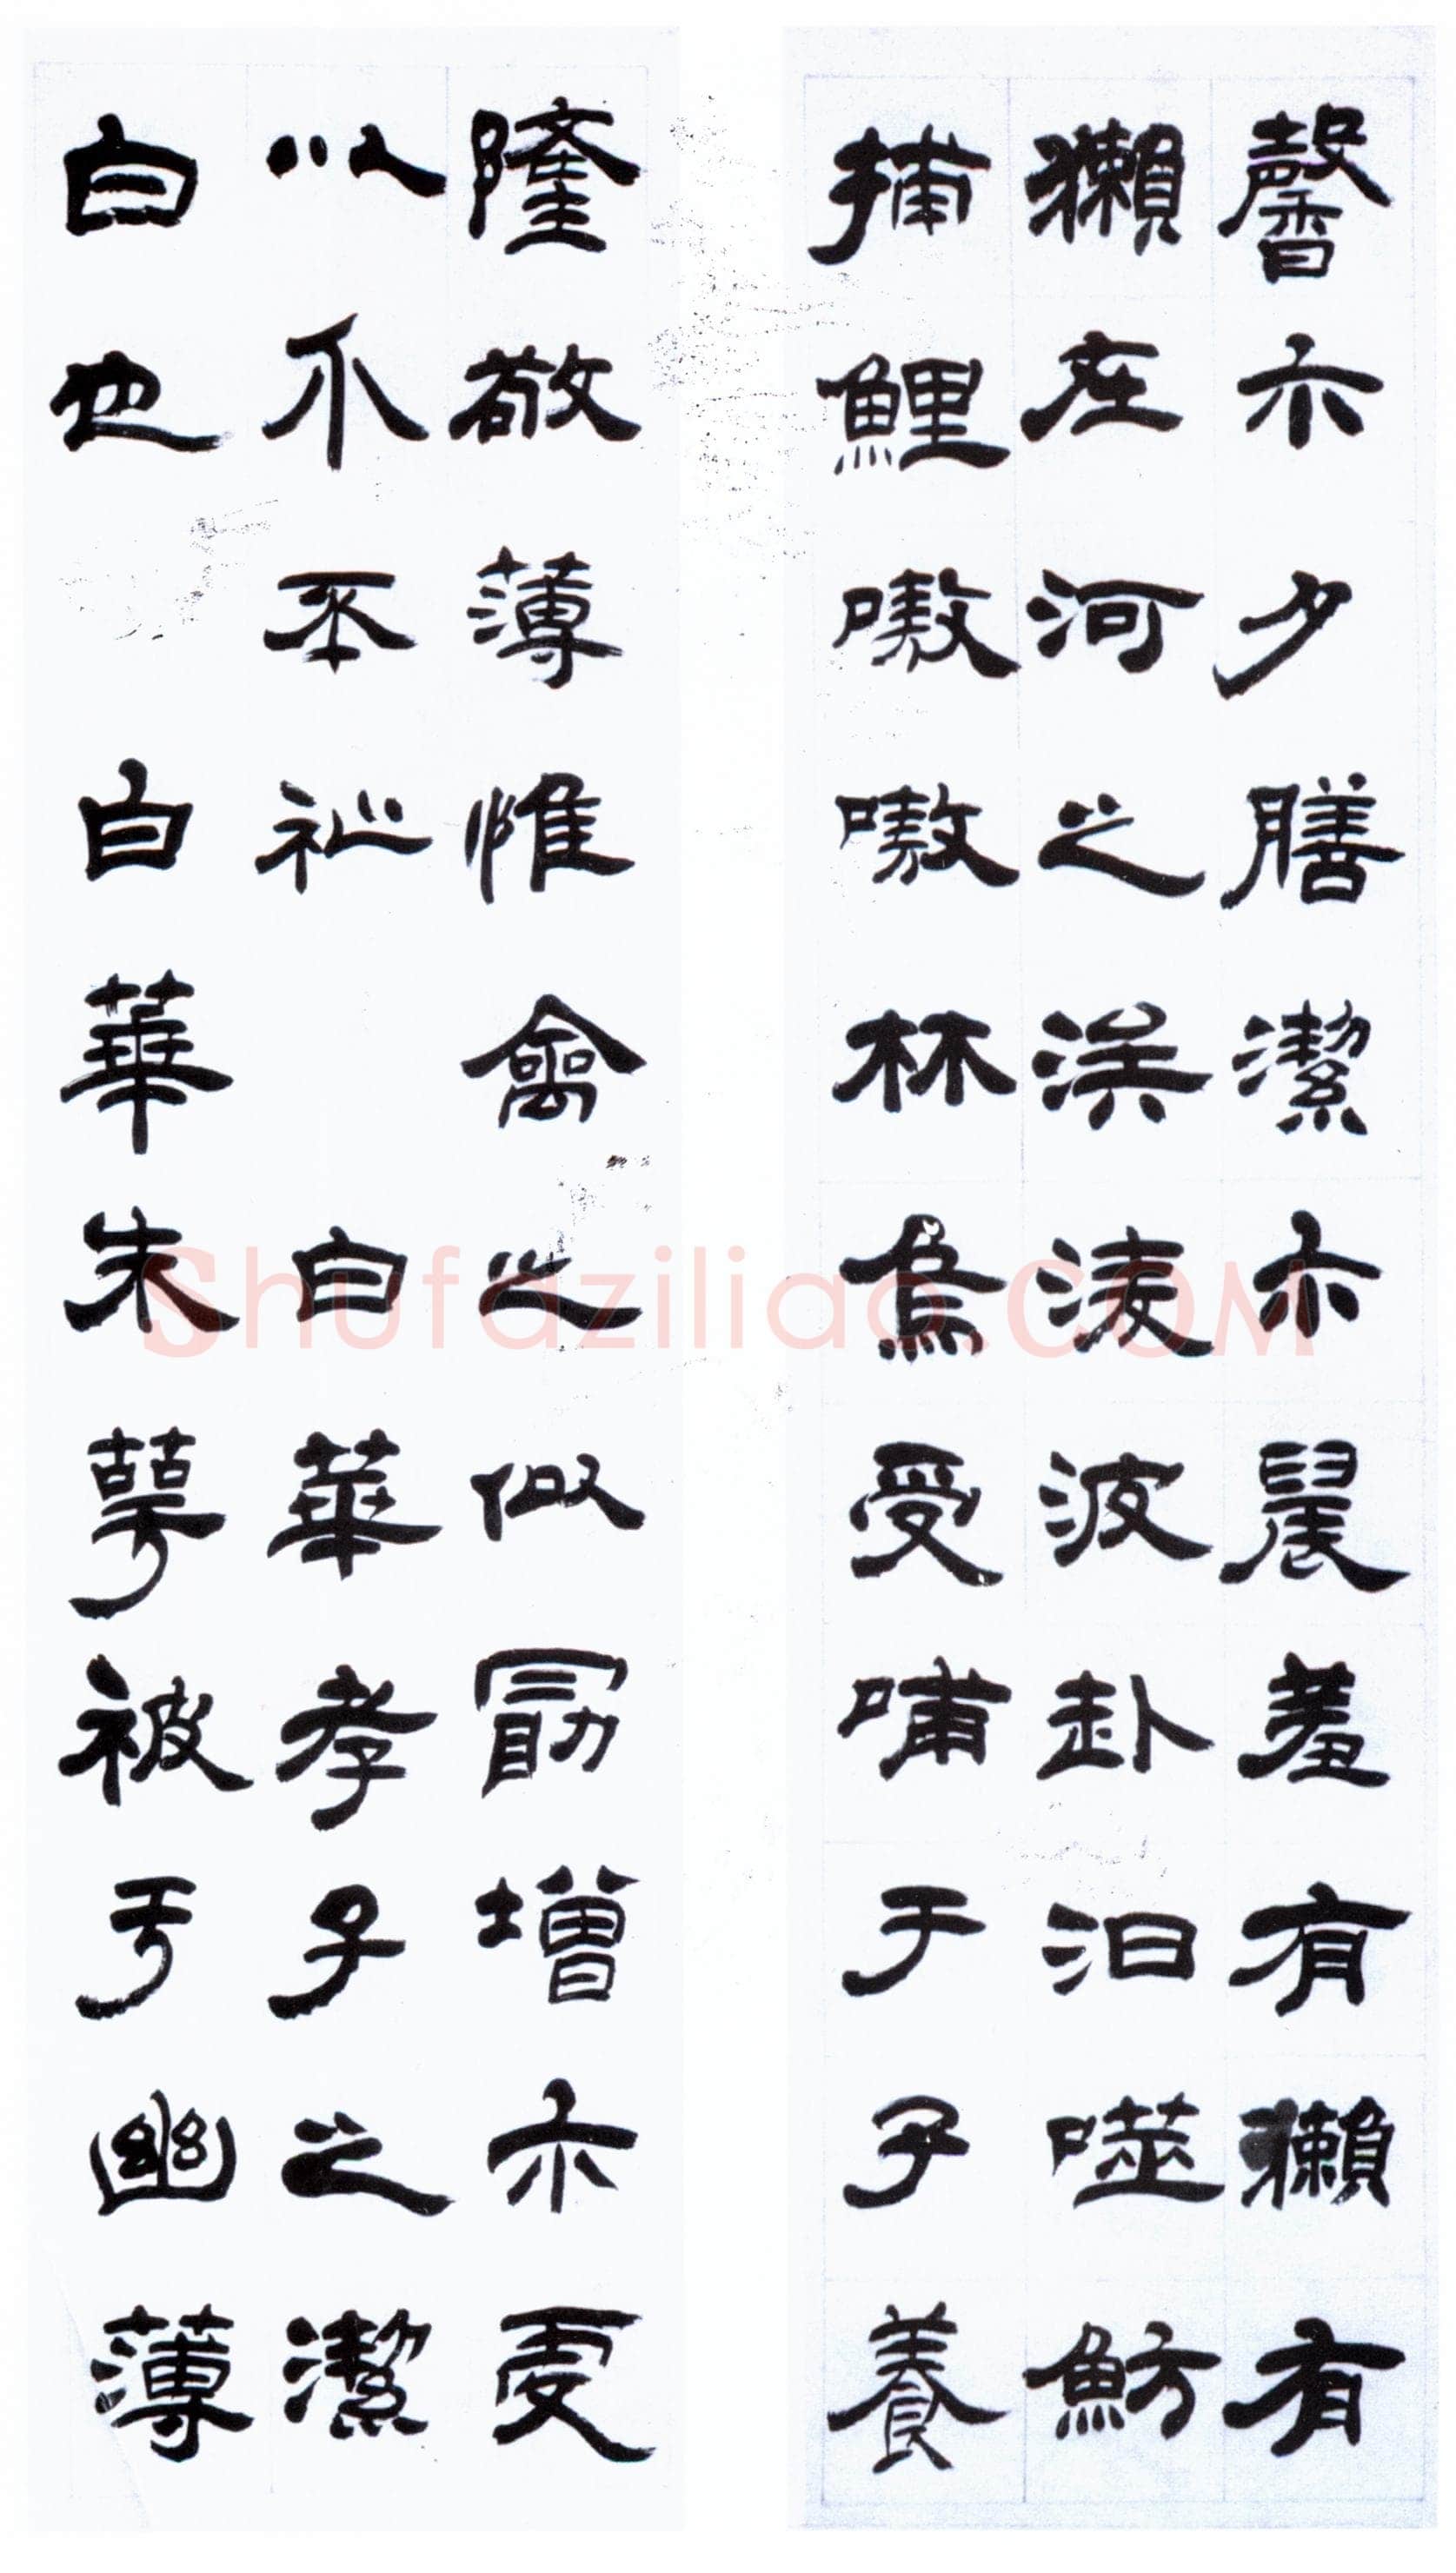 馨尒夕膳潔尒晨羞有獺有
獺在河之涘淩波赴汨噬魴
捕鯉嗷嗷林烏受哺于子養
隆敬薄惟禽之似勖增尒虔
以介丕祉 白華孝子之潔
白也 白華朱萼被于幽薄
Shufaziliao.COM